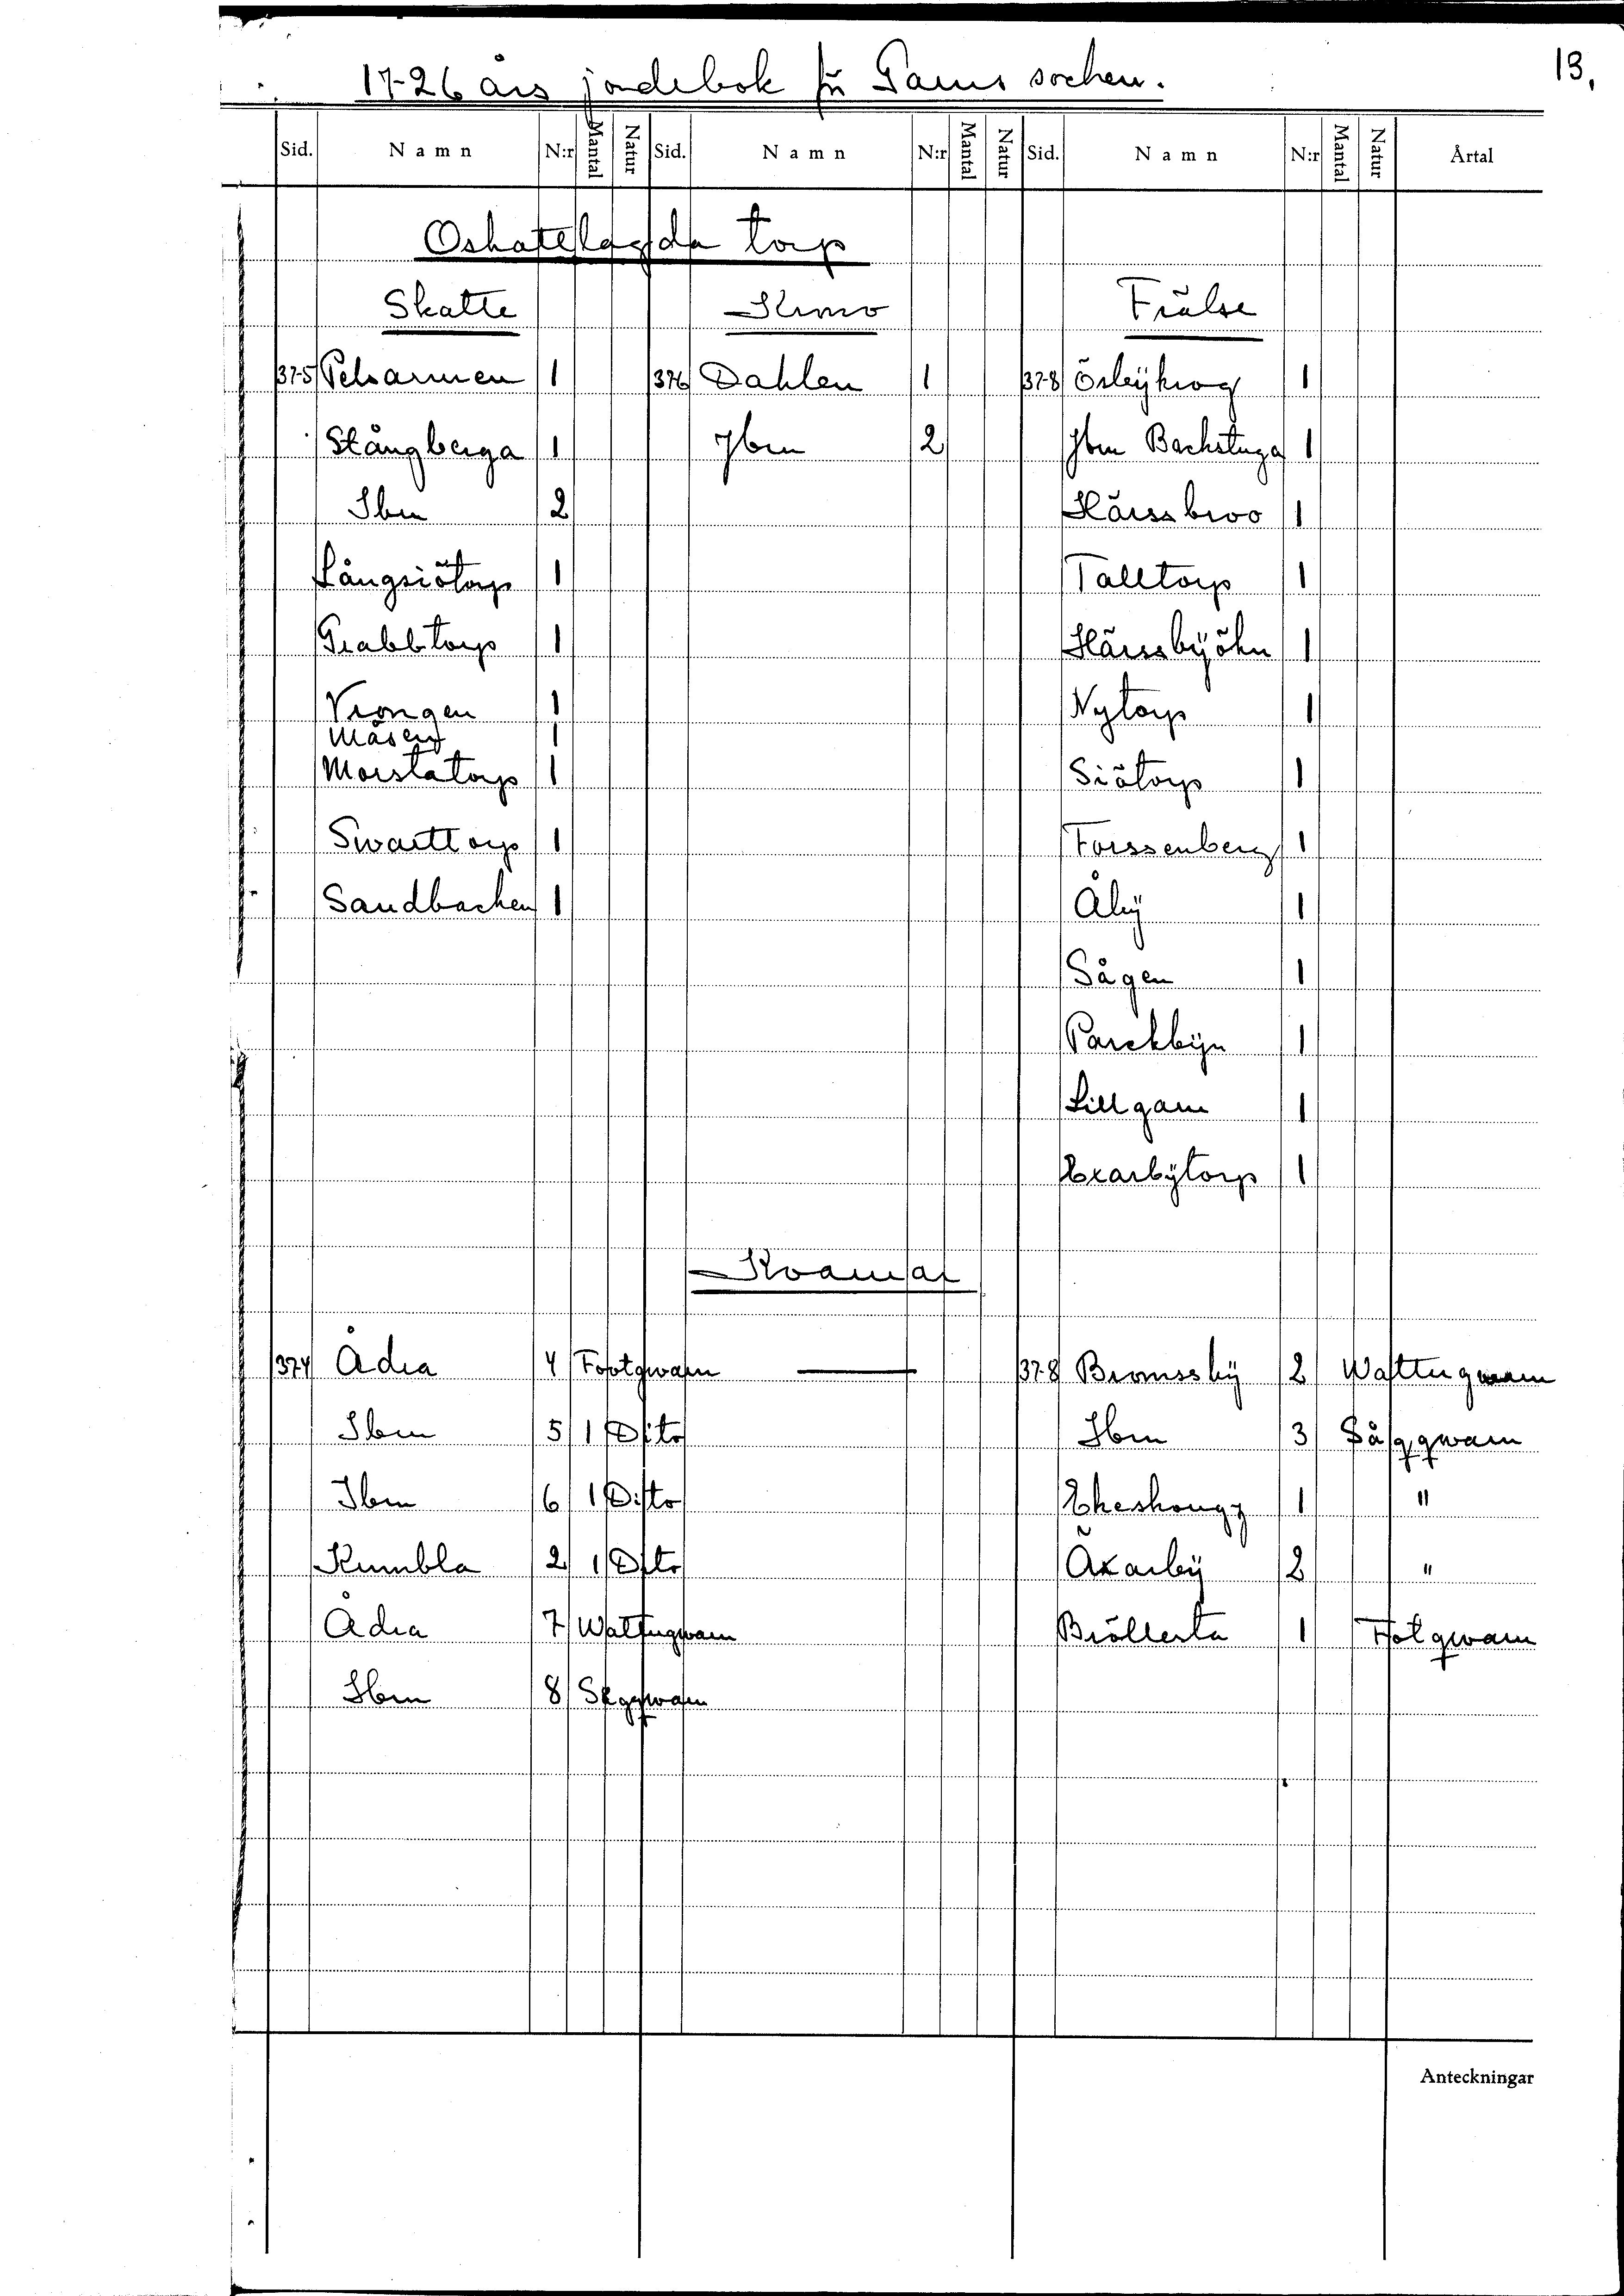 13.
1726 års jordebok för Garns socken.
Sid. Namn N:r Mantal Natur Sid. Namn N:r Mantal Natur Sid. Namn N:r Mantal Natur Årtal
Oskattlagda torp
Skatte Krono Frälse
375 Pelsarmen 1 376 Dahlen 1 378 Ösbÿkrog 1
Stångberga 1 Jbm 2 Jbm Backstuga 1
Ibm 2 Härssbroo 1
Långsiötorp 1 Talltorp 1
Grabbtorp 1 Härssbÿöhn 1
Vrongen 1 Nytorp 1
Måsen 1
Morstatorp 1 Siötorp 1
Swarttorp 1 Forssenberg 1
Sandbacken 1 Åbÿ 1
Sågen 1
Parckbÿn 1
Lillgarn 1
Exarbÿtorp 1
Kvarnar
374 Ådra 4 Footqwarn — 378 Bromssbÿ 2 Wattuqwarn
Ibm 5 1 Dito Ibm 3 Sågqwarn
Ibm 6 1 Dito Ekeskougg 1 "
Kumbla 2 1 Dito Äxarbÿ 2 "
Ådra 7 Wattuqwarn Bröllesta 1 Fotqwarn
Ibm 8 Segqwarn
Anteckningar